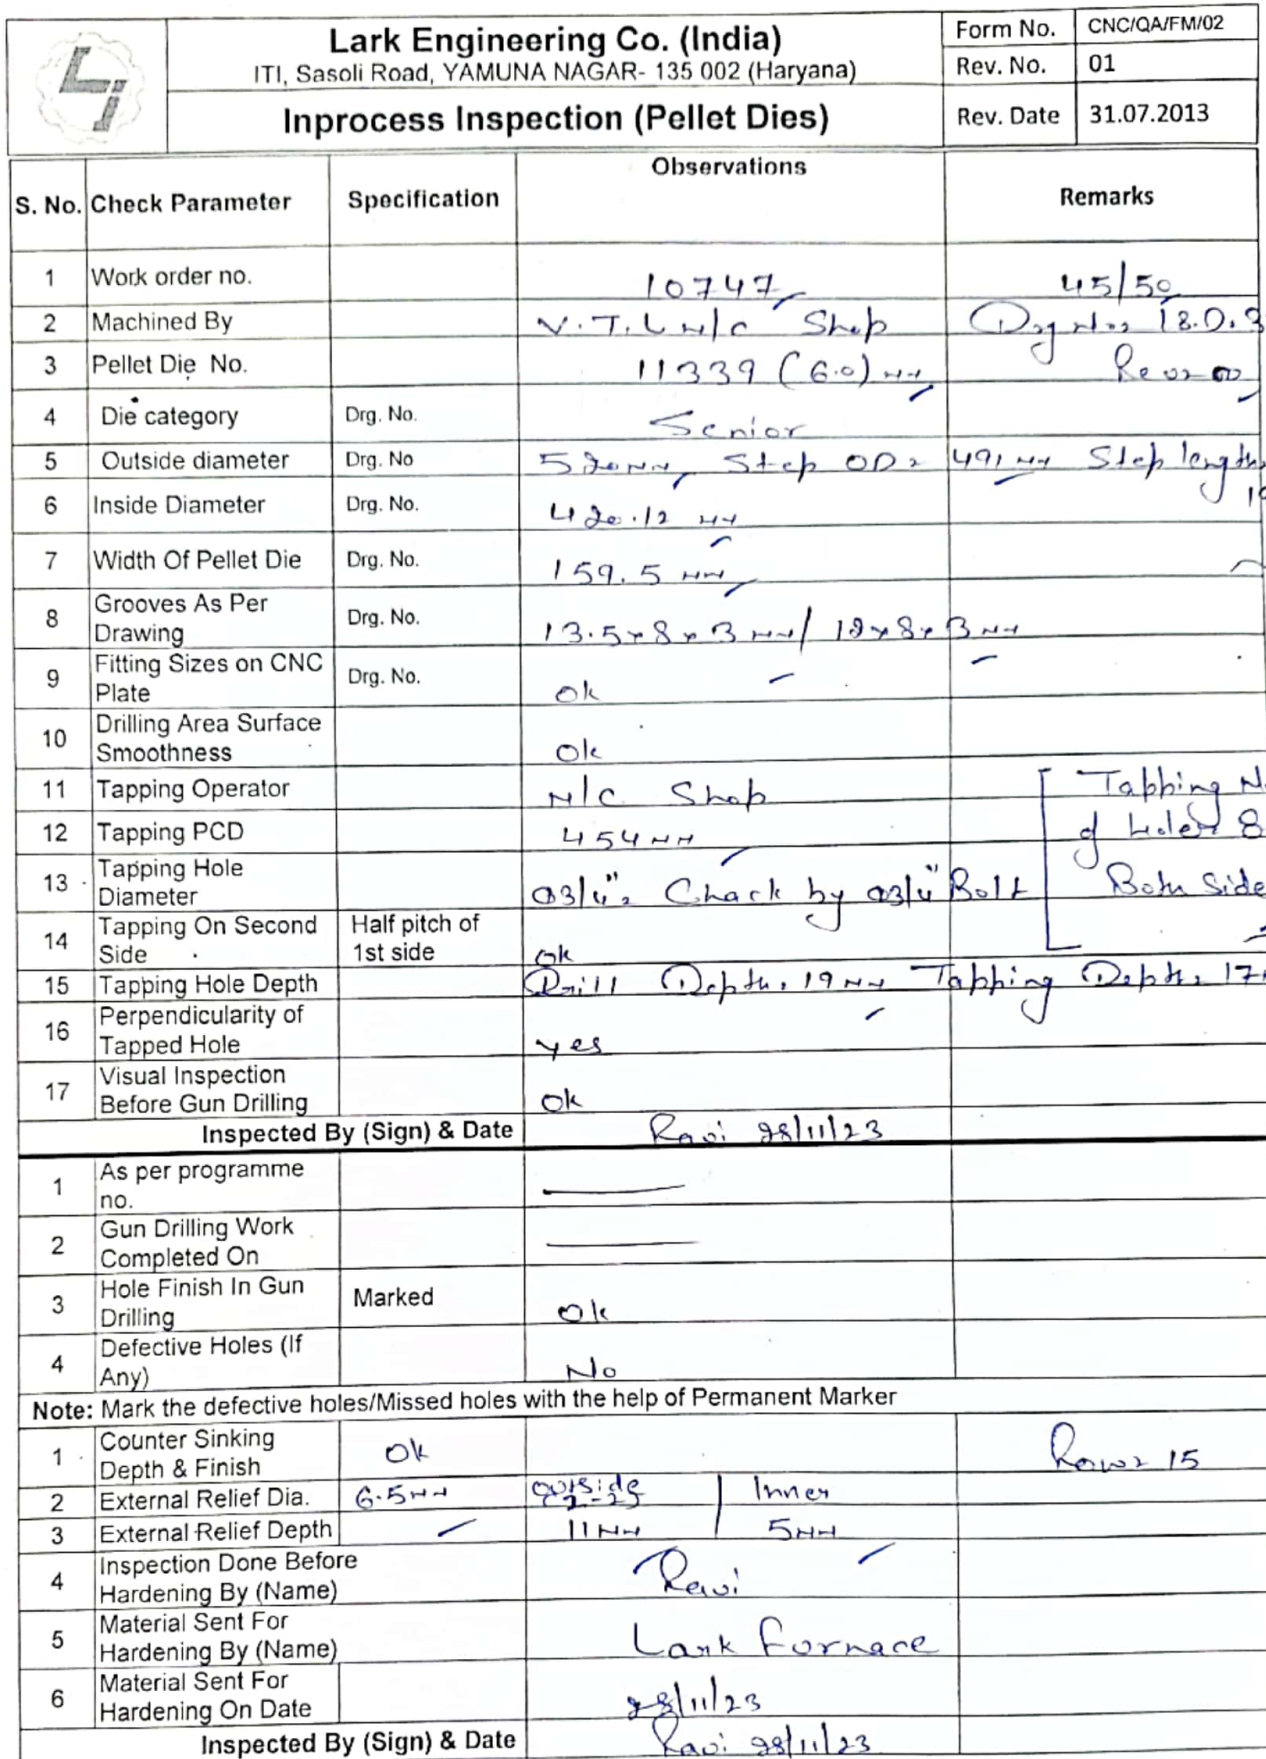 Lark Engineering Co. (India)
ITI, Sasoli Road, YAMUNA NAGAR- 135 002 (Haryana)
Inprocess Inspection (Pellet Dies)
Form No. CNC/QA/FM/02
Rev. No. 01
Rev. Date 31.07.2013
S. No. Check Parameter Specification Observations Remarks
1 Work order no. 10747 45/50
2 Machined By V.T.L M/C Shop Drg No=
3 Pellet Die No. 11339 (6.0) MM Rev= 00
4 Die category Drg. No. Senior
5 Outside diameter Drg. No 520MM, Step OD= 491 MM Step length=
6 Inside Diameter Drg. No. 420.12 MM
7 Width Of Pellet Die Drg. No. 159.5 MM
8 Grooves As Per Drawing Drg. No. 13.5x8x3 MM/ 12x8x3 MM
9 Fitting Sizes on CNC Plate Drg. No. Ok
10 Drilling Area Surface Smoothness Ok
11 Tapping Operator M/C Shop Tapping
12 Tapping PCD 454MM of Holes 8
13 Tapping Hole Diameter Ø3/4"= Chack by Ø3/4" Bolt Both Side
14 Tapping On Second Side Half pitch of 1st side Ok
15 Tapping Hole Depth Drill Depth= 19 MM Tapping Depth= 17
16 Perpendicularity of Tapped Hole yes
17 Visual Inspection Before Gun Drilling Ok
Inspected By (Sign) & Date Ravi 28/11/23
1 As per programme no.
2 Gun Drilling Work Completed On
3 Hole Finish In Gun Drilling Marked Ok
4 Defective Holes (If Any) No
Note: Mark the defective holes/Missed holes with the help of Permanent Marker
1 Counter Sinking Depth & Finish Ok Row= 15
2 External Relief Dia. 6.5MM outside Inner
3 External Relief Depth 11MM 5MM
4 Inspection Done Before Hardening By (Name) Ravi
5 Material Sent For Hardening By (Name) Lark Furnace
6 Material Sent For Hardening On Date 28/11/23
Inspected By (Sign) & Date Ravi 28/11/23